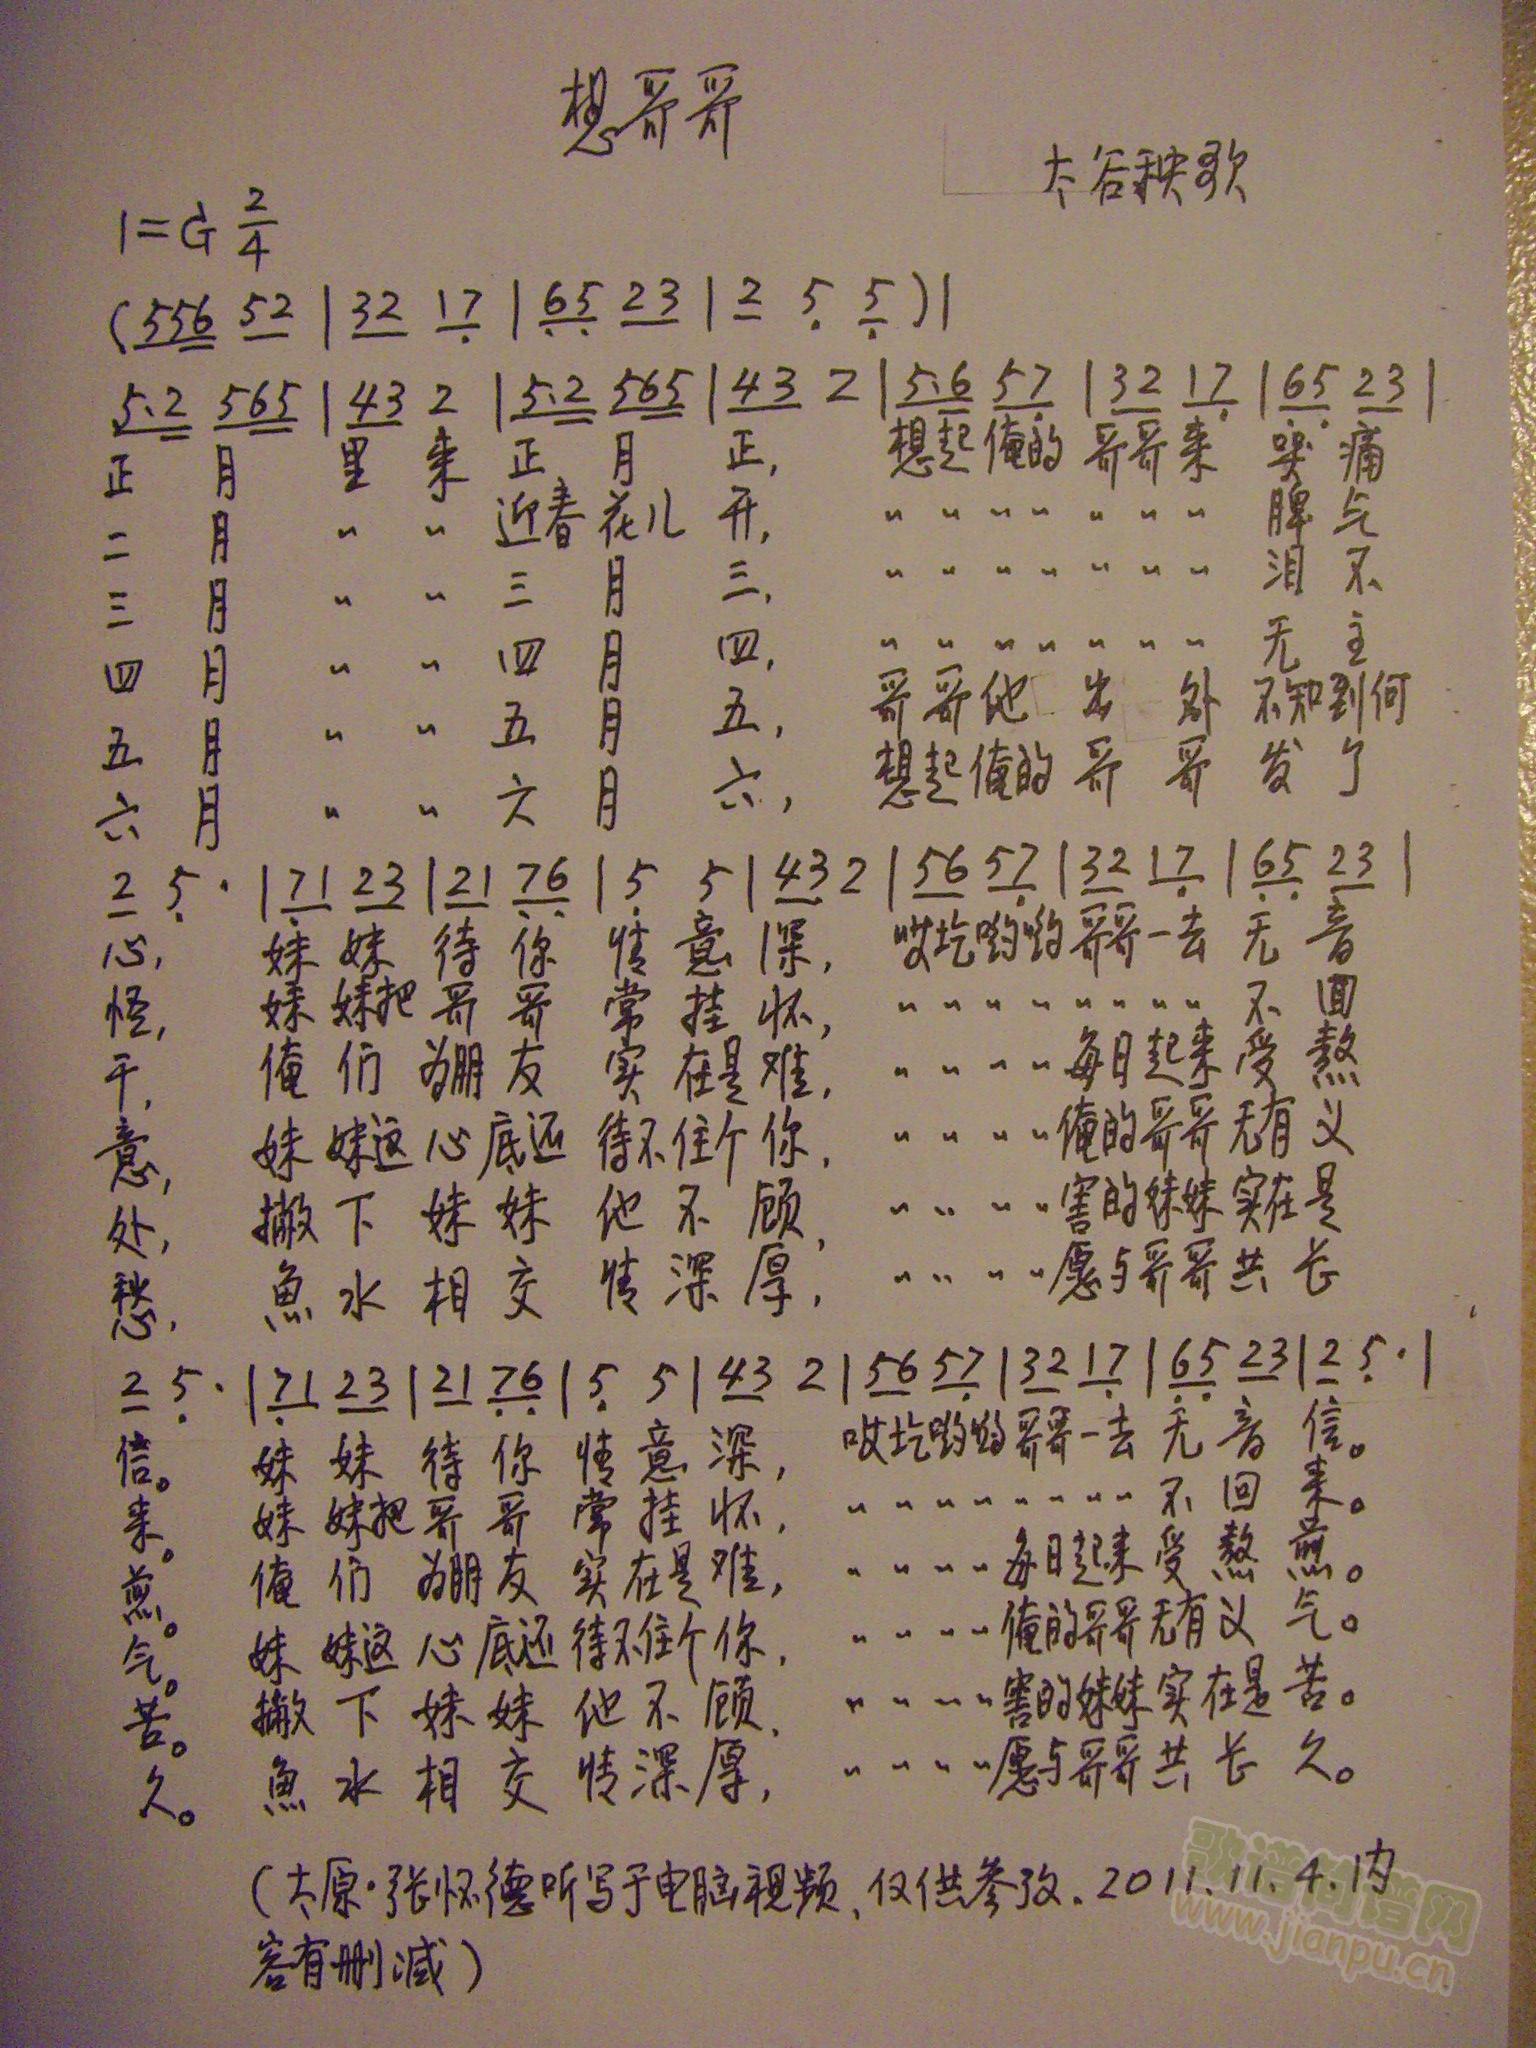 想哥哥
太谷秧歌
1=G 2/4
(556 52 | 32 17 | 65 23 | 2 5 5 ) |
5.2 565 | 43 2 | 5.2 565 | 43 2 | 5.6 57 | 32 17 | 65 23 |
正 月 里 来 正 月 正, 想起俺的 哥哥来 哭 痛
二 月 〃 〃 迎春 花儿 开, 〃 〃 〃 〃 〃 〃 〃 脾 气
三 月 〃 〃 三 月 三, 〃 〃 〃 〃 〃 〃 〃 泪 不
四 月 〃 〃 四 月 四, 〃 〃 〃 〃 〃 〃 〃 无 主
五 月 〃 〃 五 月 五, 哥哥他 出 外 不知到何
六 月 〃 〃 六 月 六, 想起俺的 哥 哥 发 了
2 5 · | 71 23 | 21 76 | 5 5 | 43 2 | 56 57 | 32 17 | 65 23 |
心, 妹 妹 待 你 情 意 深, 哎圪哟哟 哥哥一去 无 音
怪, 妹 妹把 哥 哥 常 挂 怀, 〃 〃 〃 〃 〃 〃 〃 〃 不 回
干, 俺 们 为朋 友 实 在是 难, 〃 〃 〃 〃 每日起来 受 熬
意, 妹 妹这 心 底还 待不 住个 你, 〃 〃 〃 〃 俺的哥哥 无有 义
处, 撇 下 妹 妹 他 不 顾, 〃 〃 〃 〃 害的妹妹 实在是
愁, 魚 水 相 交 情 深 厚, 〃 〃 〃 〃 愿与哥哥 共 长
2 5 · | 71 23 | 21 76 | 5 5 | 43 2 | 56 57 | 32 17 | 65 23 | 2 5 · |
信。 妹 妹 待 你 情 意 深, 哎圪哟哟 哥哥一去 无 音 信。
来。 妹 妹把 哥 哥 常 挂 怀, 〃 〃 〃 〃 〃 〃 〃 〃 不 回 来。
煎。 俺 们 为朋 友 实 在是 难, 〃 〃 〃 〃 每日起来 受 熬 煎。
气。 妹 妹这 心 底还 待不住个 你, 〃 〃 〃 〃 俺的哥哥 无有 义 气。
苦。 撇 下 妹 妹 他 不 顾, 〃 〃 〃 〃 害的妹妹 实 在是 苦。
久。 魚 水 相 交 情 深 厚, 〃 〃 〃 〃 愿与哥哥 共 长 久。
(太原·张怀德听写于电脑视频、仅供参攷. 2011.11.4. 内
容有删减)
歌谱简谱网
www.jianpu.cn